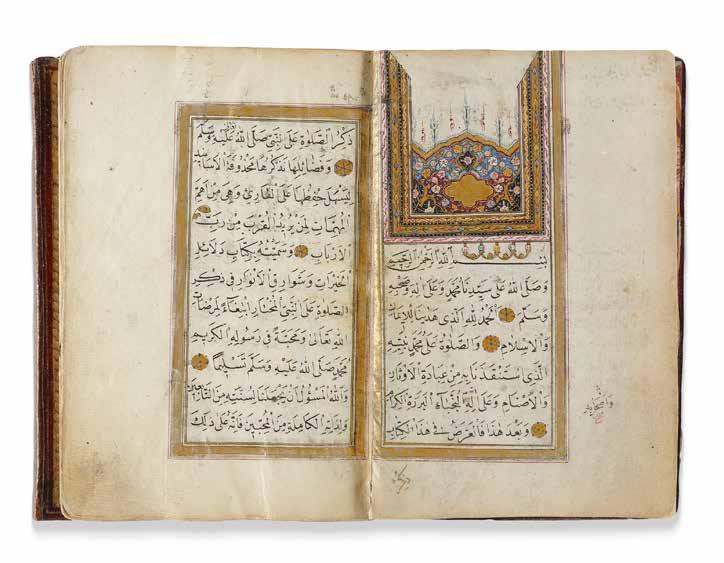 بسم الله الرحمن الرحيم
وصلى الله على سيدنا محمد وعلى اله وصحبه
وسلم الحمد لله الذى هدينا للايمان
والاسلام والصلوة على محمد نبيه
الذى استنقذنا به من عبادة الاوثان
والاصنام وعلى اله النجباء البررة الكرام
وبعد هذا فالغرض فى هذا الكتاب
واصحابه
صح
ذكر
ذكر الصلوة على النبى صلى الله عليه وسلم
وفضائلها نذكرها محذوفة الاسانيد
ليسهل حفظها على القارى وهى من اهم
المهمات لمن يريد القرب من رب
الارباب وسميته بكتاب دلائل
الخيرات وشوارق الانوار فى ذكر
الصلوة على النبى المختار ابتغاء لمرضات
الله تعالى ومحبة فى رسوله الكريم
محمد صلى الله عليه وسلم تسليما
والله المسؤل ان يجعلنا لسنته من التابعين
ولذاته الكاملة من المحبين فانه على ذلك